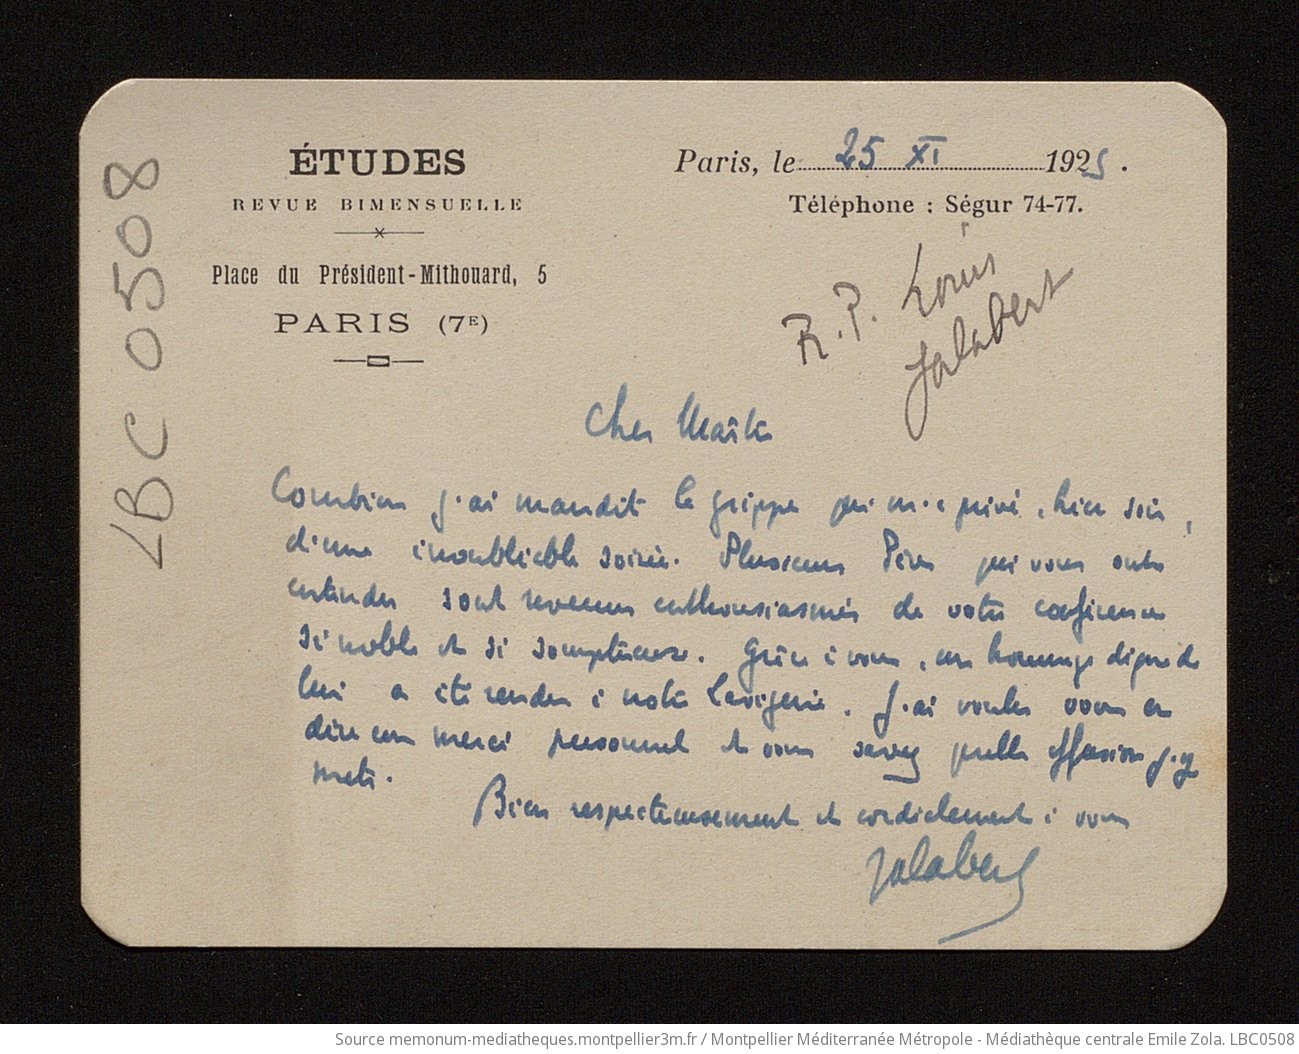 ÉTUDES
REVUE BIMENSUELLE
Place du Président-Mithouard, 5
PARIS (7E)
Paris, le 25 XI 1925.
Téléphone : Ségur 74-77.
R. P. Louis
Jalabert
LBC 0508
Cher Maître
Combien j'ai maudit la grippe qui m'a privé, hier soir,
d'une inoubliable soirée. Plusieurs Pères qui vous ont
entendu sont revenus enthousiasmés de votre conférence
si noble et si somptueuse. Grâce à vous, un hommage digne de
lui a été rendu à notre Lavigerie. J'ai voulu vous en
dire un merci personnel et vous savez quelle effusion j'y
mets.
Bien respectueusement et cordialement à vous
Jalabert
Source memonum-mediatheques.montpellier3m.fr / Montpellier Méditerranée Métropole - Médiathèque centrale Emile Zola. LBC0508